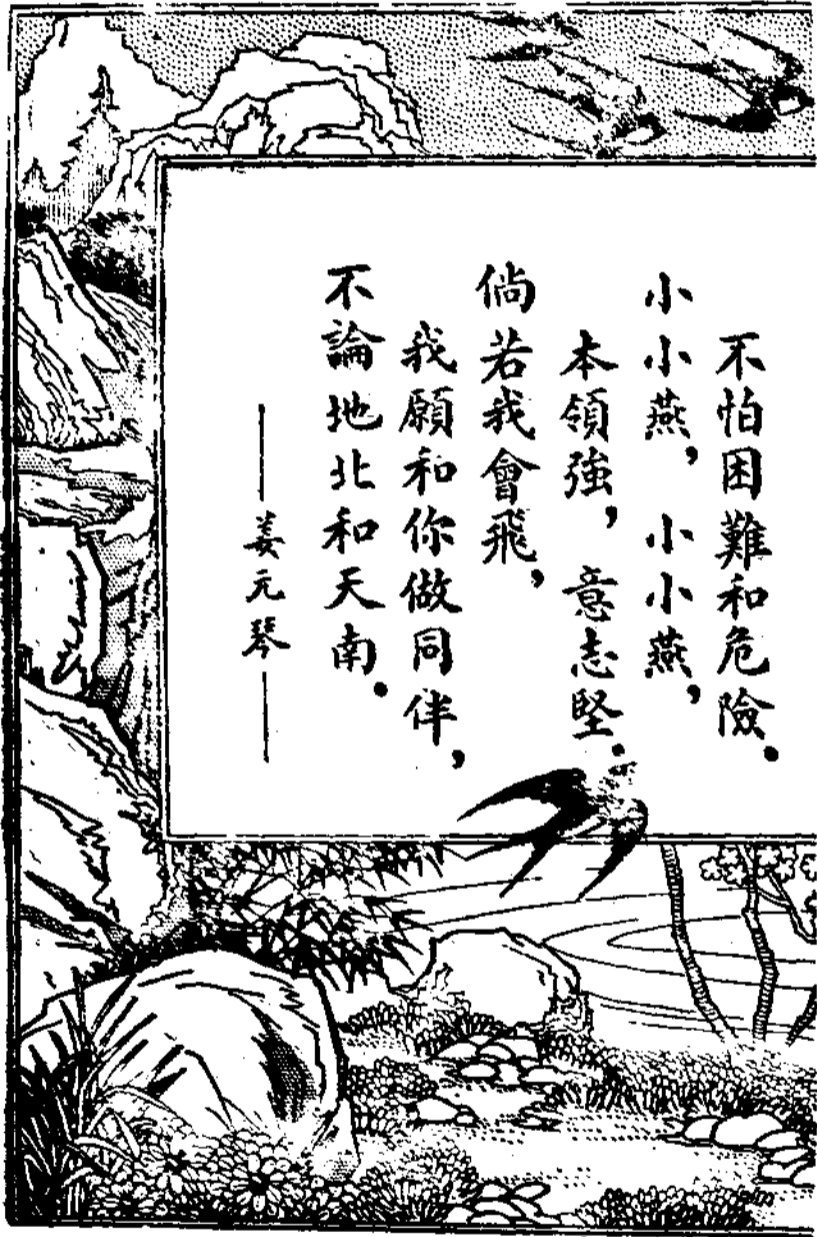 不怕困難和危險．
小小燕，小小燕，
本領強，意志堅．
倘若我會飛，
我願和你做同伴，
不論地北和天南．
——姜元琴——